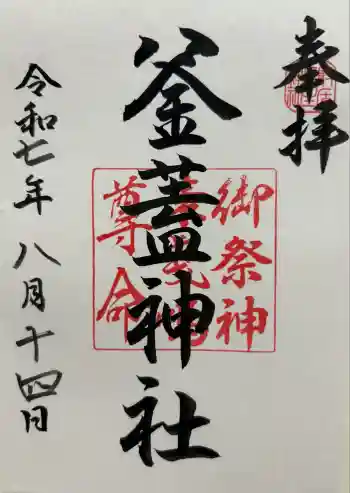 奉拝
釜蓋神社
御祭神
尊命
令和七年 八月十四日